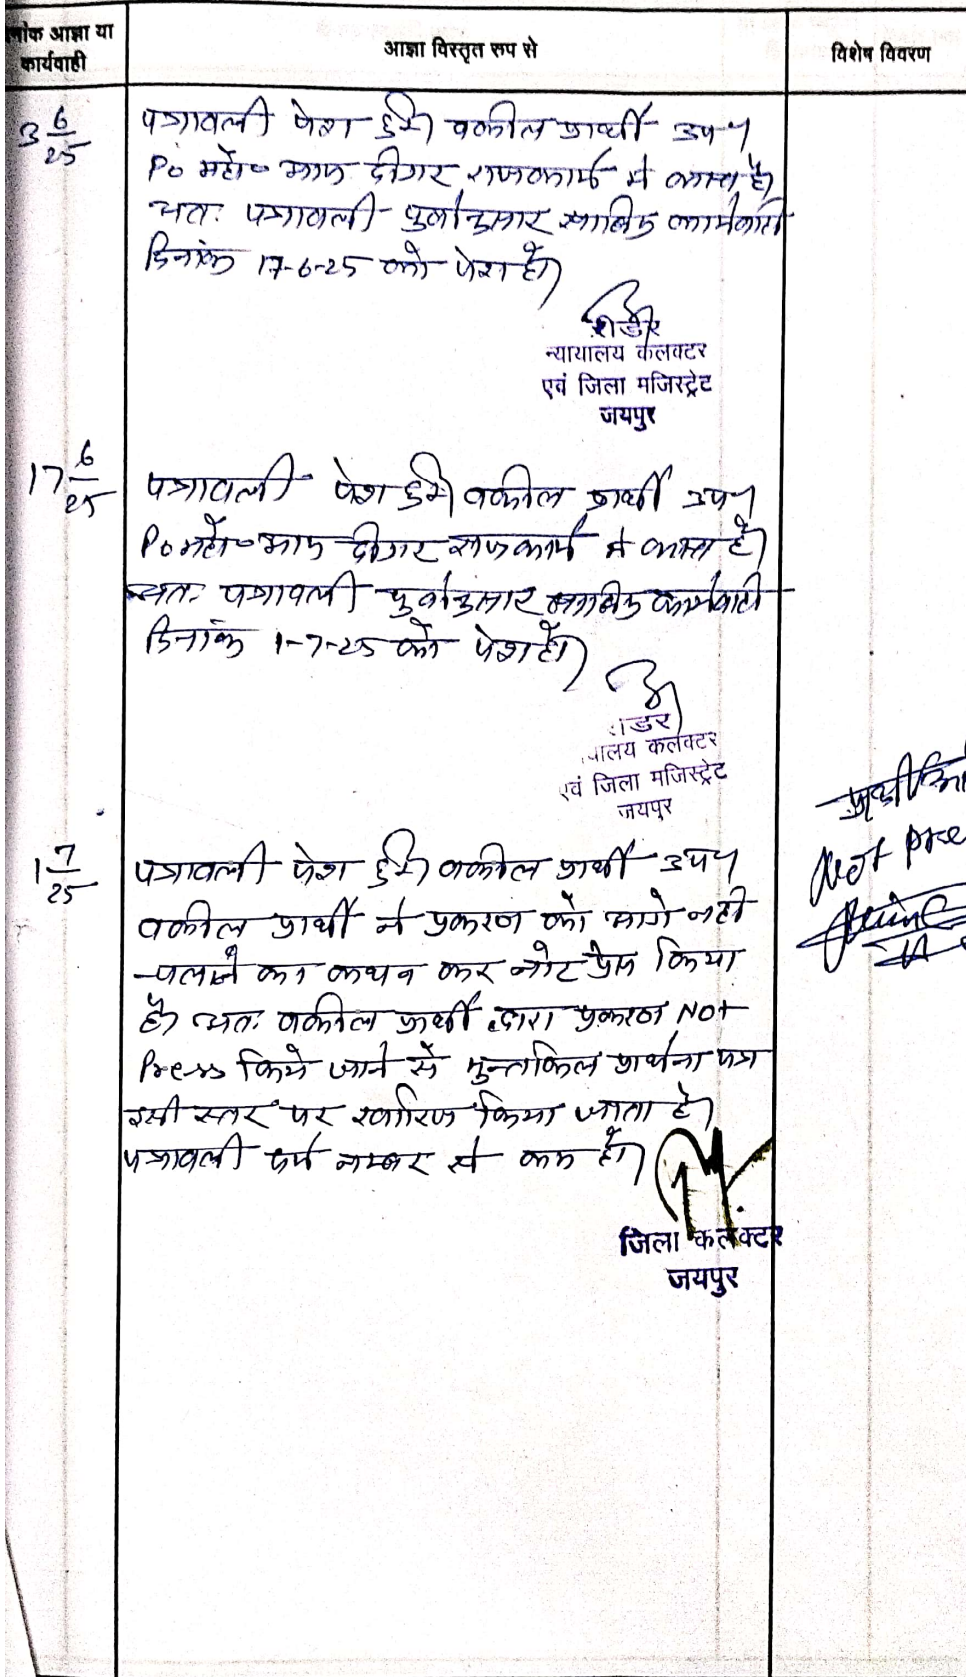 आज्ञा या
कार्यवाही
आज्ञा विस्तृत रूप से
विशेष विवरण
3 6/25
पत्रावली पेश हुई। वकील प्रार्थी उप०।
Po महो० आज दीगर राजकार्य में व्यस्त है।
अतः पत्रावली पूर्वानुसार साबिक कार्यवाही
दिनांक 17-6-25 को पेश हो।
रीडर
न्यायालय कलक्टर
एवं जिला मजिस्ट्रेट
जयपुर
17 6/25
पत्रावली पेश हुई। वकील प्रार्थी उप०।
Po महो० आज दीगर राजकार्य में व्यस्त है।
अतः पत्रावली पूर्वानुसार साबिक कार्यवाही
दिनांक 1-7-25 को पेश हो।
ीडर
यालय कलक्टर
एवं जिला मजिस्ट्रेट
जयपुर
1 7/25
पत्रावली पेश हुई। वकील प्रार्थी उप०।
वकील प्रार्थी ने प्रकरण को आगे नहीं
चलाने का कथन कर नोट प्रेस किया
है। अतः वकील प्रार्थी द्वारा प्रकरण Not
Press किये जाने से मुन्तकिल प्रार्थना पत्र
इसी स्तर पर खारिज किया जाता है।
पत्रावली फर्म नम्बर से कम हो।
Not pre
जिला कलक्टर
जयपुर